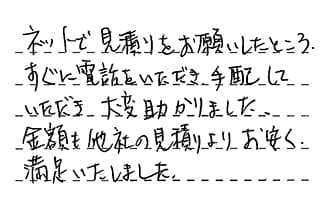 ネットで見積りをお願いしたところ.
すぐに電話をいただき手配して
いただき 大変助かりました、
金額も他社の見積りより お安く
満足いたしました.